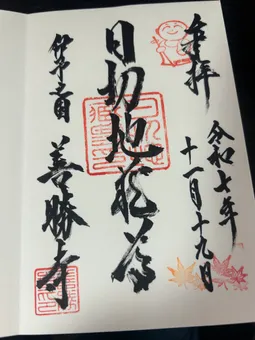 奉拝
令和七年
十一月十九日
日切地蔵尊
善勝寺